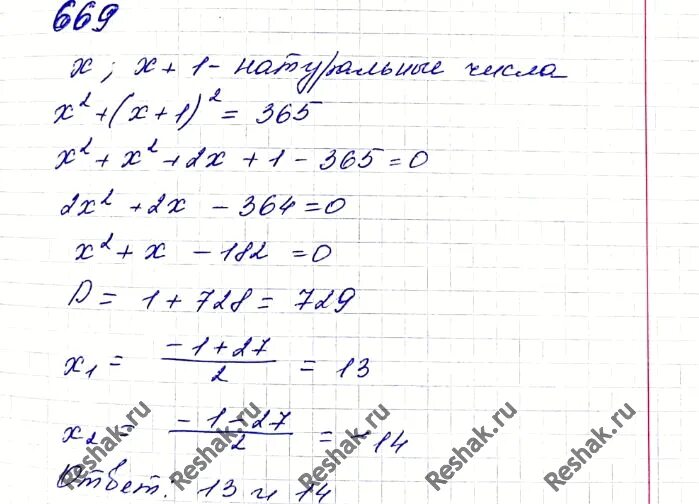 669
x; x+1 - натуральные числа
x² + (x+1)² = 365
x² + x² + 2x + 1 - 365 = 0
2x² + 2x - 364 = 0
x² + x - 182 = 0
D = 1 + 728 = 729
x₁ = (-1+27)/2 = 13
x₂ = (-1-27)/2 = -14
Ответ: 13 и 14
Reshak.ru Reshak.ru Reshak.ru Reshak.ru Reshak.ru